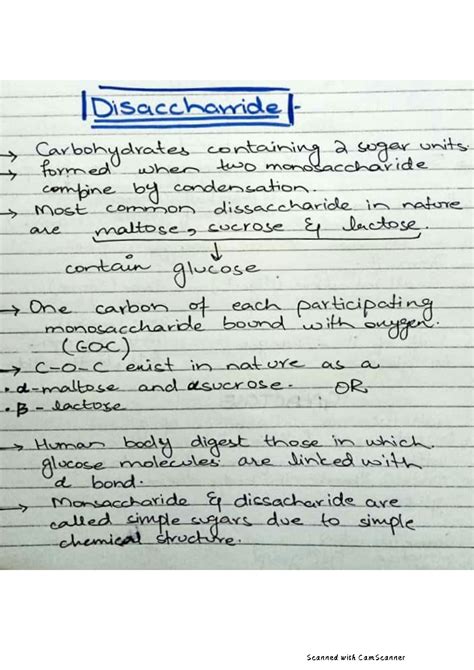 Disaccharride :-
→ Carbohydrates containing 2 sugar units.
→ formed when two monosaccharide
combine by condensation.
→ Most common dissaccharide in nature
are maltose, sucrose & lactose.
↓
contain glucose.
→ One carbon of each participating
monosaccharide bound with oxygen.
(COC)
→ C-O-C exist in nature as a
• α-maltose and αsucrose. OR
• β - lactose
→ Human body digest those in which
glucose molecules are linked with
α bond.
→ Monsaccharide & dissacharide are
called simple sugars due to simple
chemical structure.
Scanned with CamScanner